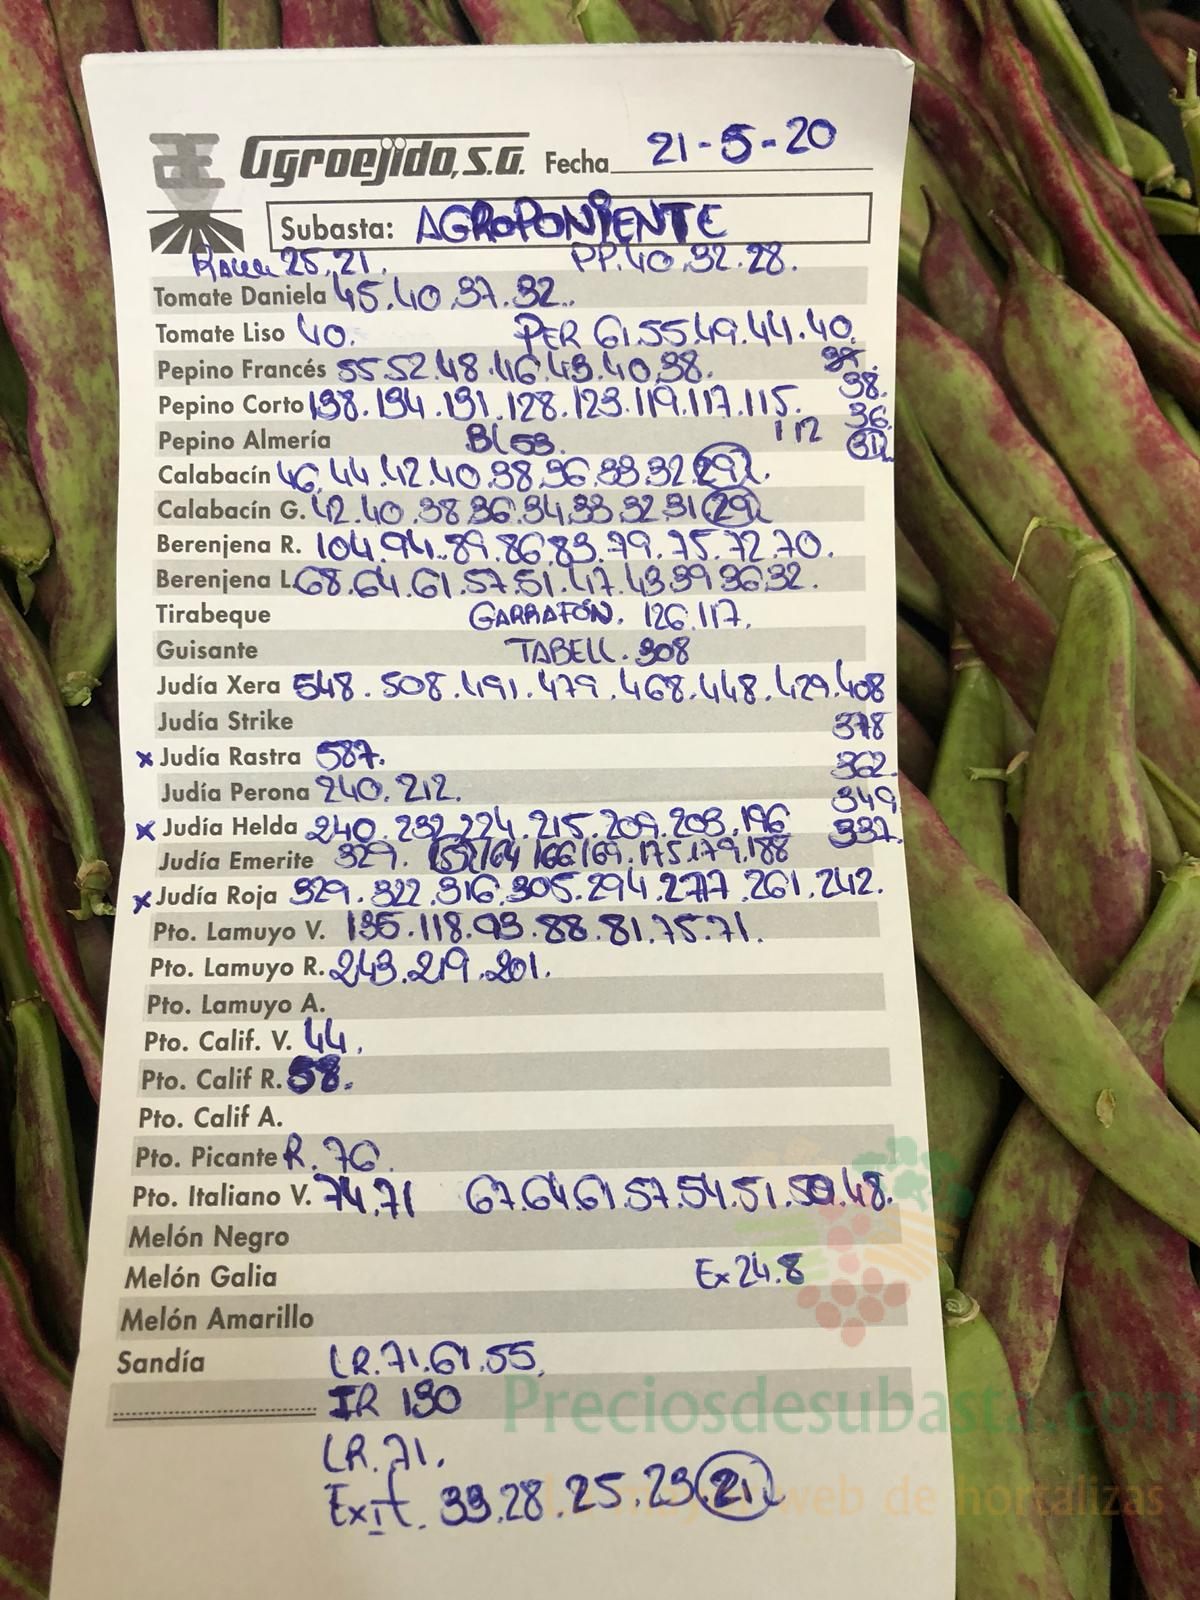 Agroejido, S.A. Fecha 21-5-20
Subasta: AGROPONIENTE
25.21. PP.40.32.28.
Tomate Daniela 45.40.37.32.
Tomate Liso 40. PER 61.55.49.44.40.
Pepino Francés 55.52.48.46.43.40.38.
38.
Pepino Corto 138.134.131.128.123.119.117.115.
36.
Pepino Almería BL 53. 112
31
Calabacín 46.44.42.40.38.36.33.32.29.
Calabacín G. 42.40.38.36.34.33.32.31.29
Berenjena R. 104.94.89.86.83.79.75.72.70.
Berenjena L. 68.64.61.57.51.47.43.39.36.32.
Tirabeque GARRAFÓN. 126.117.
Guisante TABELL. 308
Judía Xera 548.508.491.479.468.448.429.408
Judía Strike 378
x Judía Rastra 587. 362
Judía Perona 240.212. 349
x Judía Helda 240.232.224.215.209.203.196 337.
Judía Emerite 329. 152.164.166.169.175.179.188
x Judía Roja 329.322.316.305.294.277.261.242.
Pto. Lamuyo V. 135.118.93.88.81.75.71.
Pto. Lamuyo R. 243.219.201.
Pto. Lamuyo A.
Pto. Calif. V. 44.
Pto. Calif R. 58.
Pto. Calif A.
Pto. Picante R. 76.
Pto. Italiano V. 74.71 67.64.61.57.54.51.50.48.
Melón Negro
Melón Galia Ex 24.8
Melón Amarillo
Sandía LR.71.61.55.
IR 130
LR.71.
Ext. 33.28.25.23.21
Preciosdesubasta.com
web de hortalizas